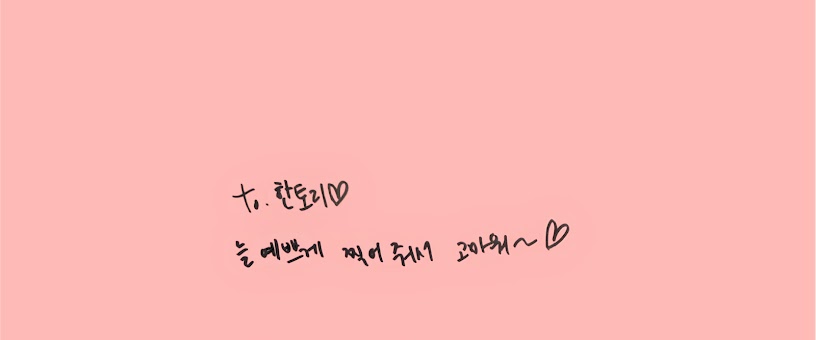 to. 한토리♡
늘 예쁘게 찍어 줘서 고마워~♡